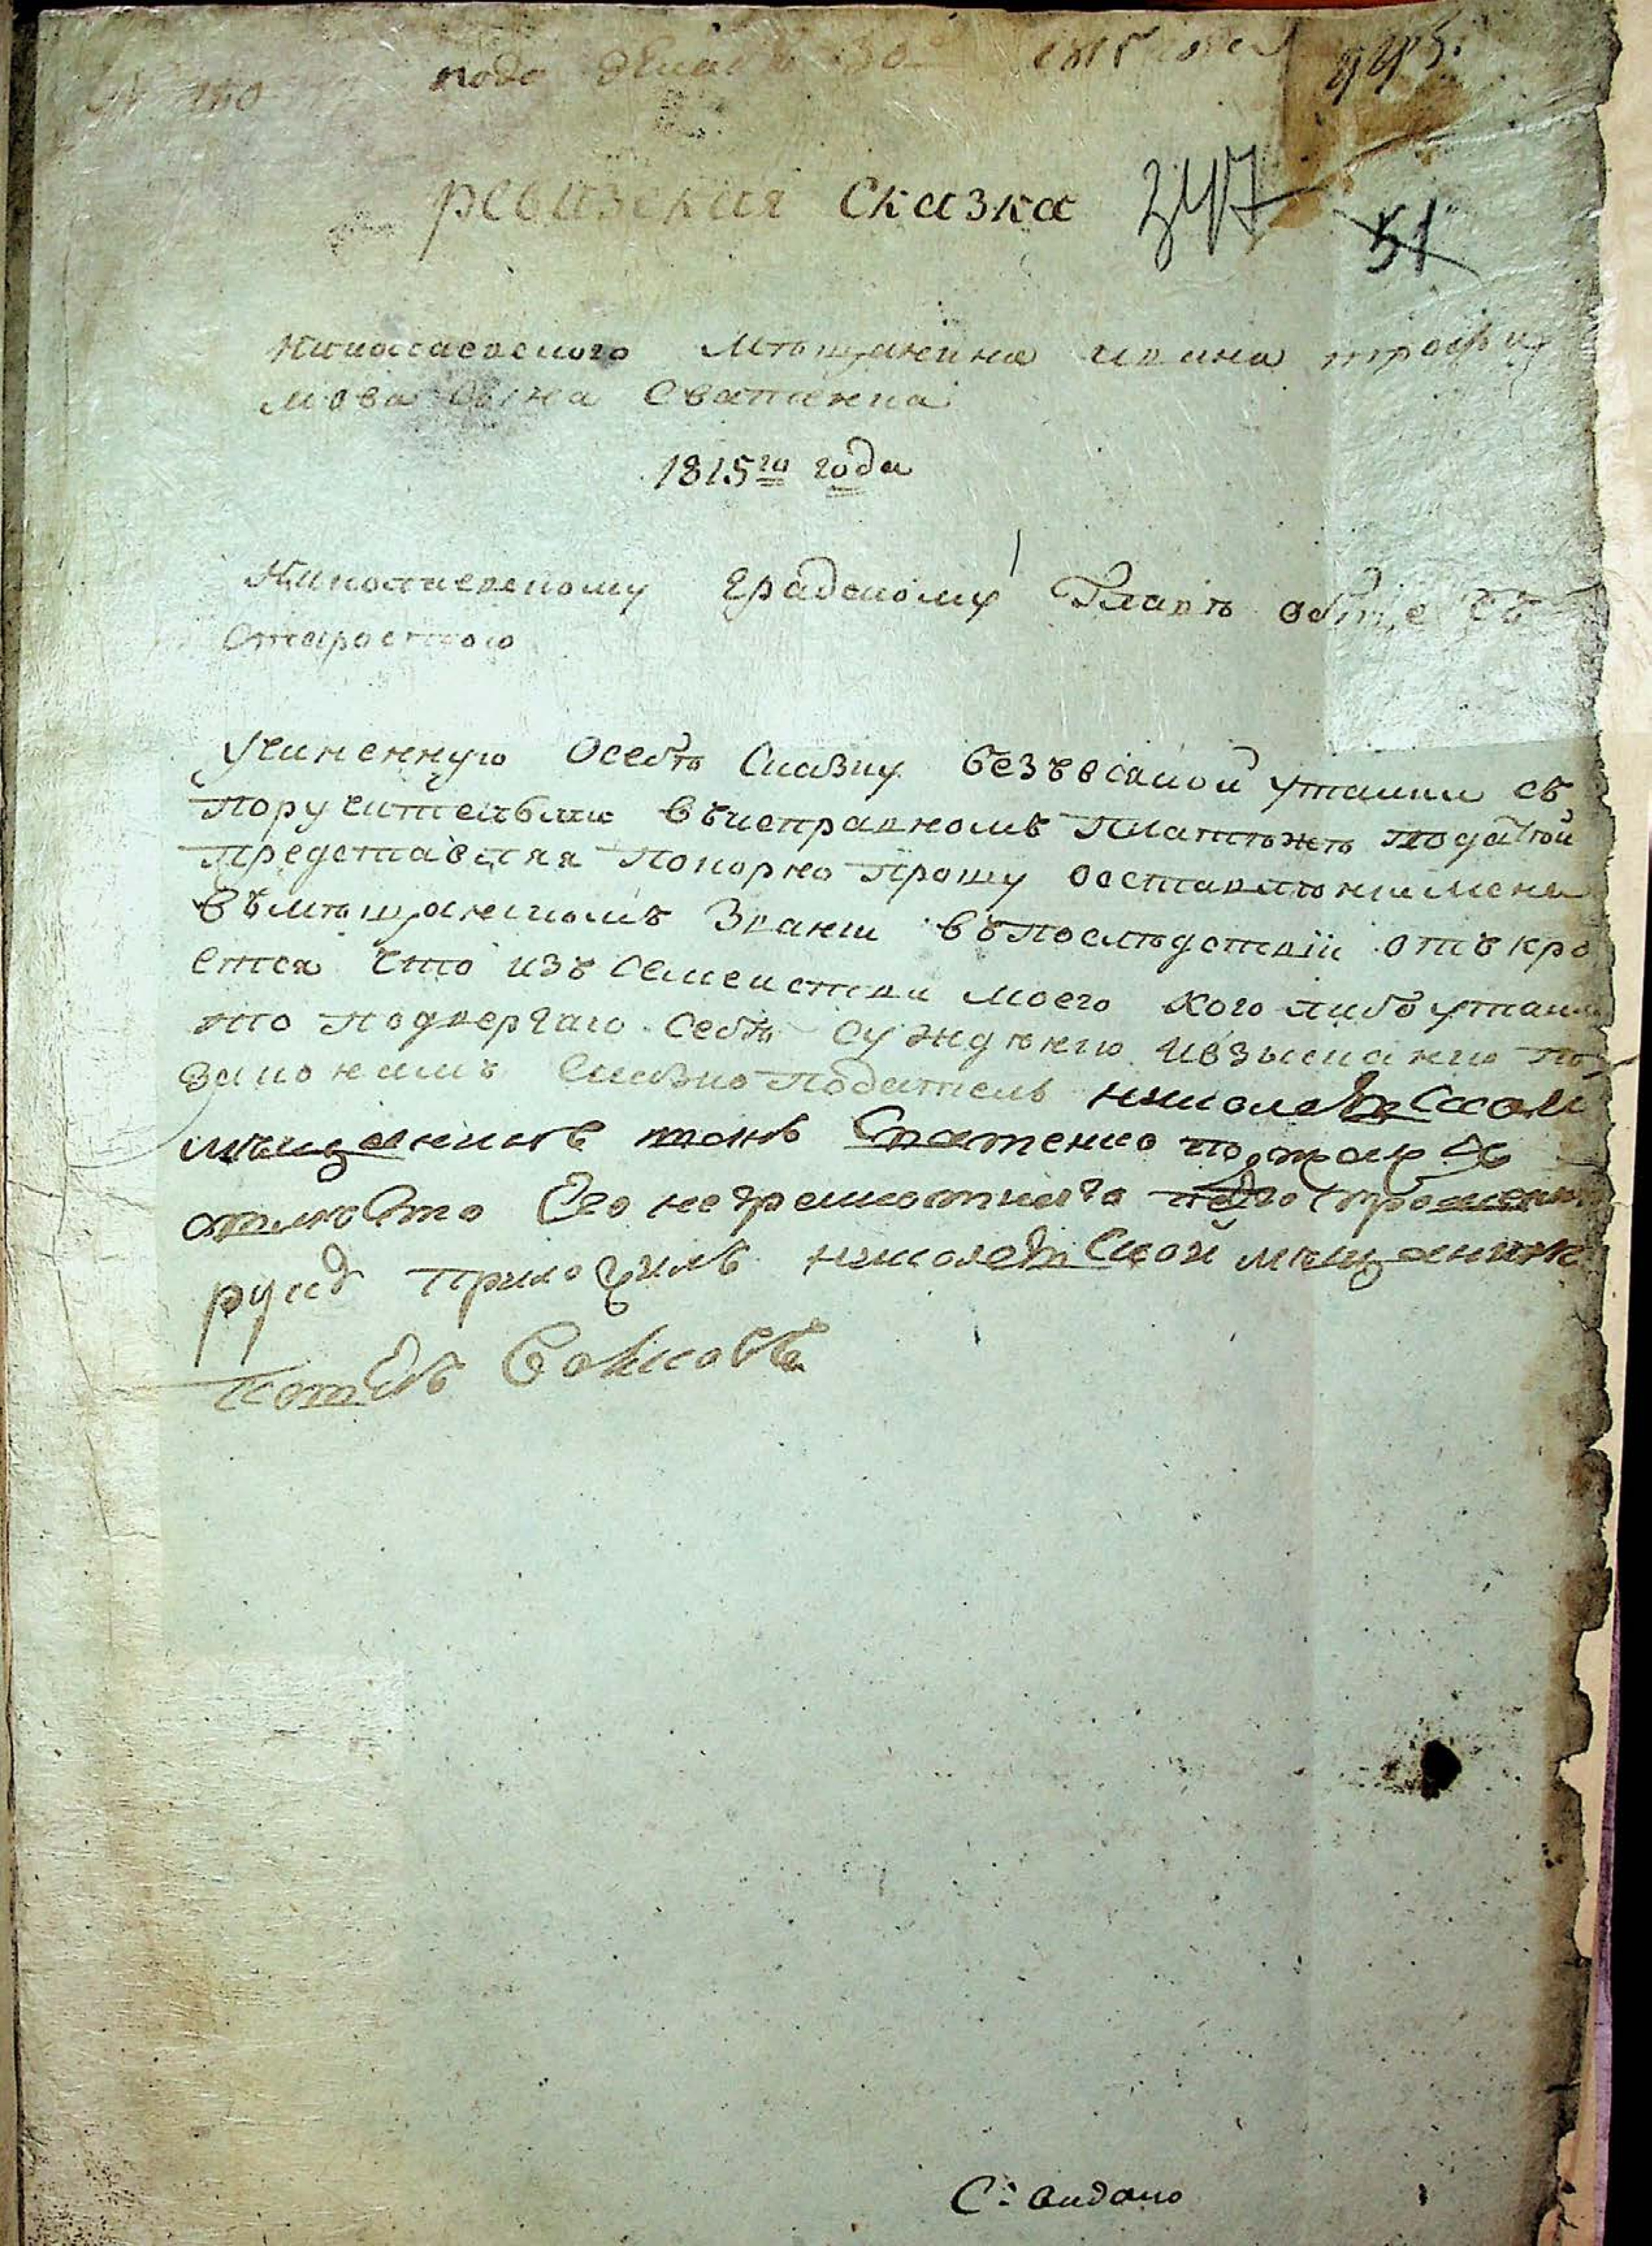 № 180 пода декабря 30 1815 года 443.
ревизская сказка 347 51
Николаевского мѣщанина ивана трофи
мова сына Сватенка
1815го года
Николаевскому градскому Главѣ обще съ
старостою
учиненную Осебѣ Сказку безъвсякой утайки съ
поручительми въисправномъ платѣжѣ податѣй
представляя покорно прошу оставленiи меня
въмѣщанскомъ званiи въпослѣдствiи отъкро
ется что изъ семейства моего кого либо утаилъ
то подвергаю себѣ сужденiю ивзысканiю по
законамъ Сказко податель николаевской
мѣщанинъ Сватенко
его неграмотнаго
руку приложилъ николаевской мѣщанинъ
С: видано